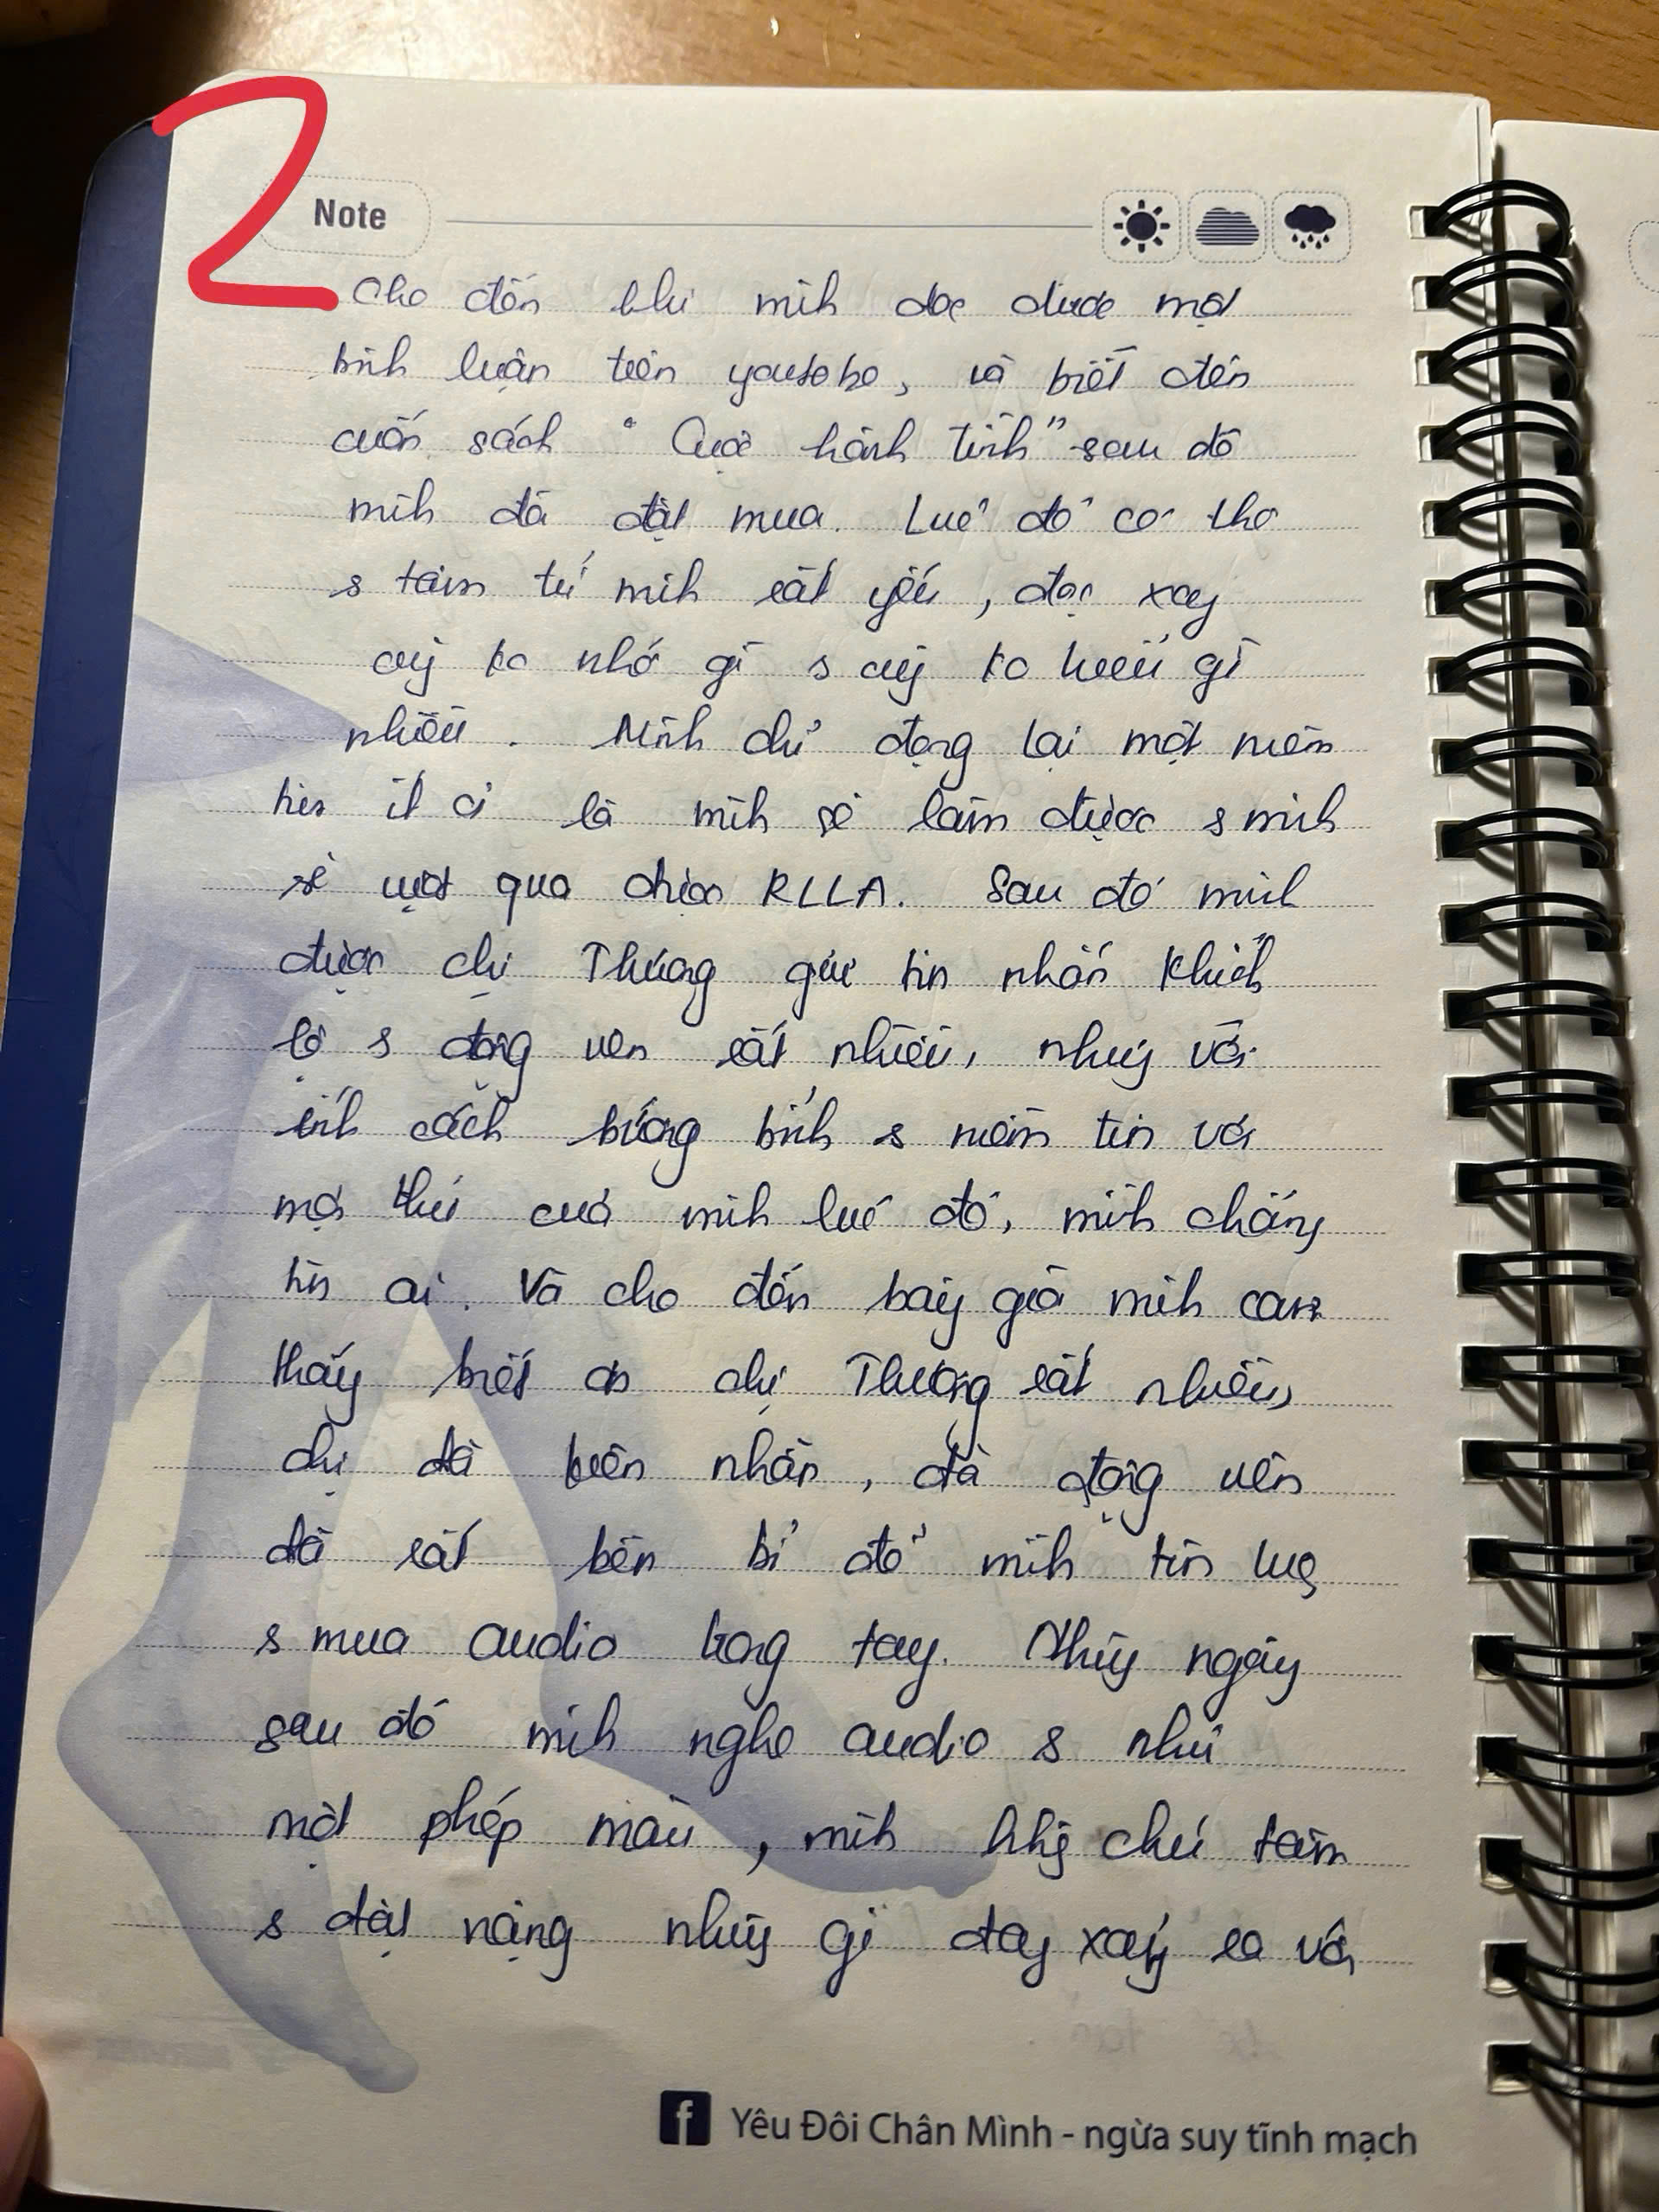 2
Note
Cho đến khi mình đọc được một
bình luận trên youtobe, và biết đến
cuốn sách "Cuộc hành trình" sau đó
mình đã đặt mua. Lúc đó cơ thể
& tâm trí mình rất yếu, đọc xong
cũg ko nhớ gì & cũg ko hiểu gì
nhiều. Mình chỉ đọng lại một niềm
tin ít ỏi là mình sẽ làm được & mình
sẽ vượt qua được RLLA. Sau đó mình
được chị Thương gửi tin nhắn khích
lệ & động viên rất nhiều, nhưg với
tính cách bướng bỉnh & niềm tin với
mọi thứ của mình lúc đó, mình chẳng
tin ai. Và cho đến bây giờ mình cảm
thấy biết ơn chị Thương rất nhiều,
chị đã kiên nhẫn, đã động viên
đã rất bền bỉ để mình tin
& mua audio trong tay. Nhữg ngày
sau đó mình nghe audio & như
một phép màu, mình khg chú tâm
& đặt nặng nhữg gì đag xảy ra với
Yêu Đôi Chân Mình - ngừa suy tĩnh mạch